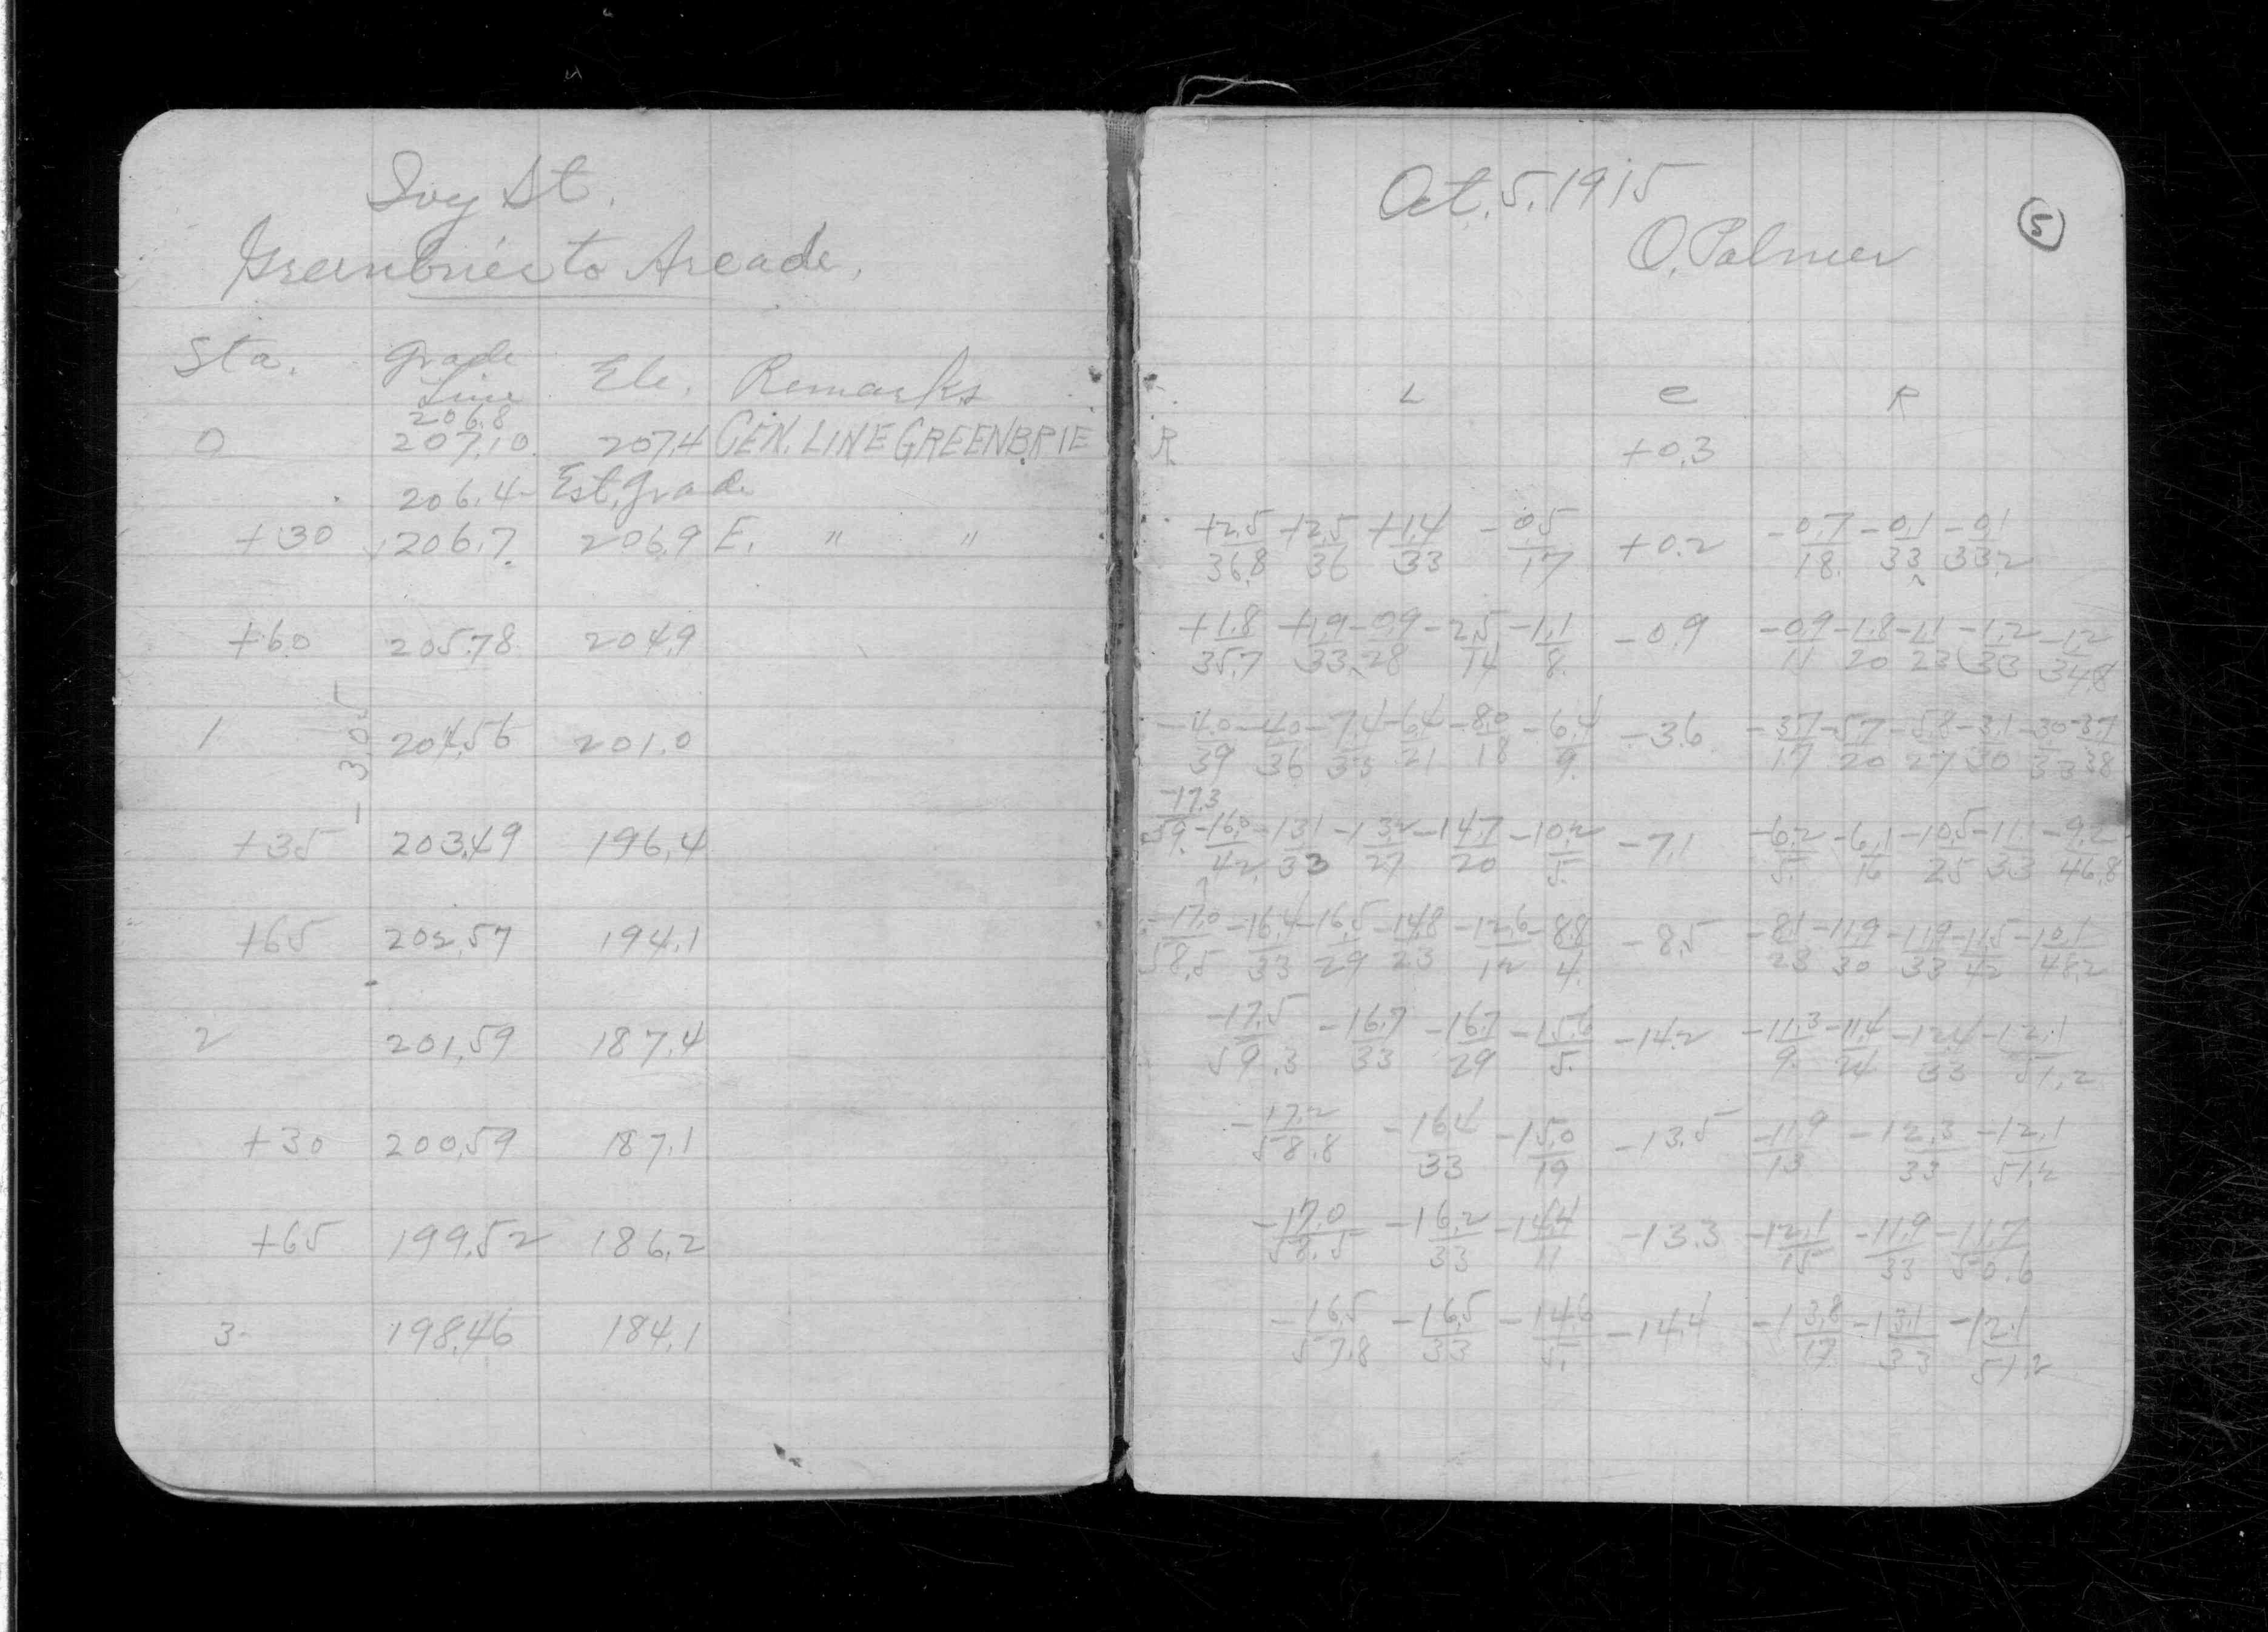 Ivy St.
Greenbrier to Arcade.
Sta. Grade Line Ele. Remarks
206.8
0 207.10 207.4 CEN. LINE GREENBRIE
206.4 Est. Grade
+30 206.7 206.9 E. " "
+60 205.78 204.9
1 204.56 201.0
- 3.05
+35 203.49 196.4
+65 202.57 194.1
2 201.59 187.4
+30 200.59 187.1
+65 199.52 186.2
3 198.46 184.1
Oct. 5. 1915
5
O. Palmer
L C R
R +0.3
+2.5 +2.5 +1.4 -0.5 +0.2 -0.7 -0.1 -0.1
36.8 36 33 17 18. 33 33.2
+1.8 +1.9 -0.9 -2.5 -1.1 -0.9 -0.9 -1.8 -1.1 -1.2 -1.2
35.7 33 28 14 8. 11 20 23 33 34.8
-4.0 -4.0 -7.4 -6.4 -8.0 -6.4 -3.6 -3.7 -5.7 -5.8 -3.1 -3.0 -3.7
39 36 33 21 18 9. 17 20 27 30 33 38
-17.3
59. -16.0 -13.1 -13.2 -14.7 -10.2 -7.1 -6.2 -6.1 -10.5 -11.1 -9.2
42. 33 27 20 5. 5. 16 25 33 46.8
-17.0 -16.4 -16.5 -14.8 -12.6 -8.8 -8.5 -8.1 -11.9 -11.9 -11.5 -10.1
58.5 33 29 23 12 4. 23 30 33 42 48.2
-17.5 -16.7 -16.7 -15.6 -14.2 -11.3 -11.4 -12.4 -12.1
59.3 33 29 5. 9. 24 33 51.2
-17.2 -16.4 -15.0 -13.5 -11.9 -12.3 -12.1
58.8 33 19 13 33 51.2
-17.0 -16.2 -14.4 -13.3 -12.1 -11.9 -11.7
58.5 33 11 15 33 50.6
-16.5 -16.5 -14.6 -14.4 -13.8 -13.1 -12.1
57.8 33 5. 17 33 51.2